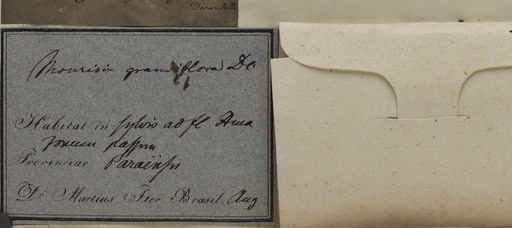 Mouriri grandiflora DC
Habitat in sylvis ad fl Ama
zonum passim
Provinciae Paraënsis
Dr Martius Iter Brasil. Aug